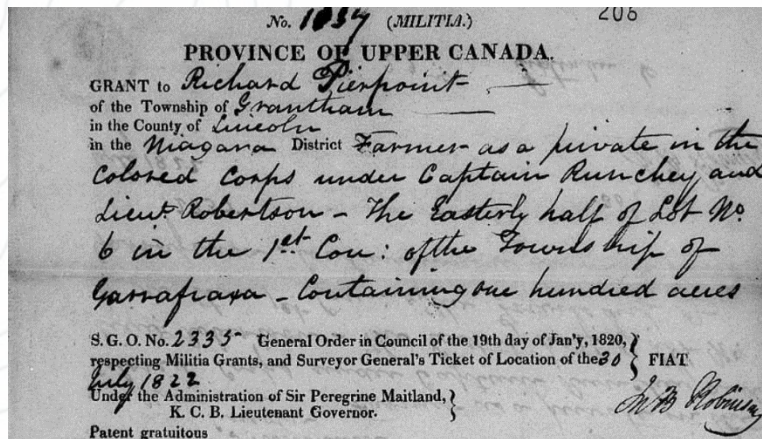 No. 1034 (MILITIA.) 206
PROVINCE OF UPPER CANADA.
GRANT to Richard Pierpoint
of the Township of Grantham
in the County of Lincoln
in the Niagara District Farmer as a private in the
Colored Corps under Captain Runchey and
Lieut. Robertson – The Easterly half of Lot No.
6 in the 1st. Con: of the Township of
Garrafraxa – Containing one hundred acres
S. G. O. No. 2335 General Order in Council of the 19th day of Jan'y, 1820,
respecting Militia Grants, and Surveyor General's Ticket of Location of the 30 } FIAT
July 1822
Under the Administration of Sir Peregrine Maitland, }
K. C. B. Lieutenant Governor.
Jn B Robinson
Patent gratuitous